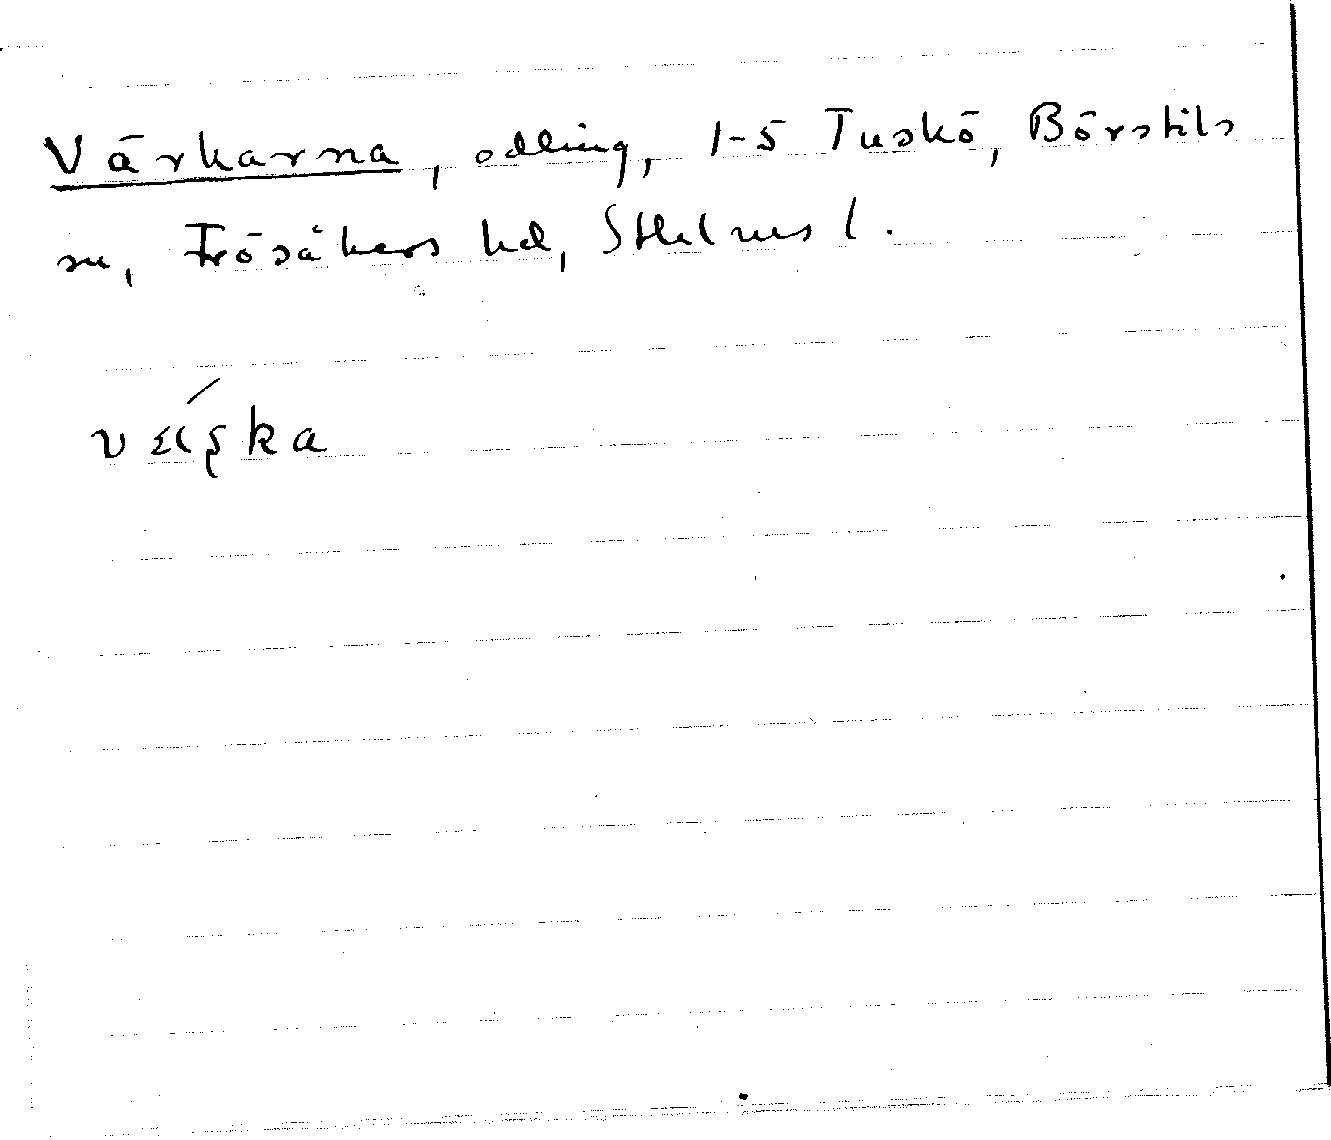 Värkarna, odling, 1-5 Tuskö, Börstils
sn, Frösåkers hd, Sthlms l.